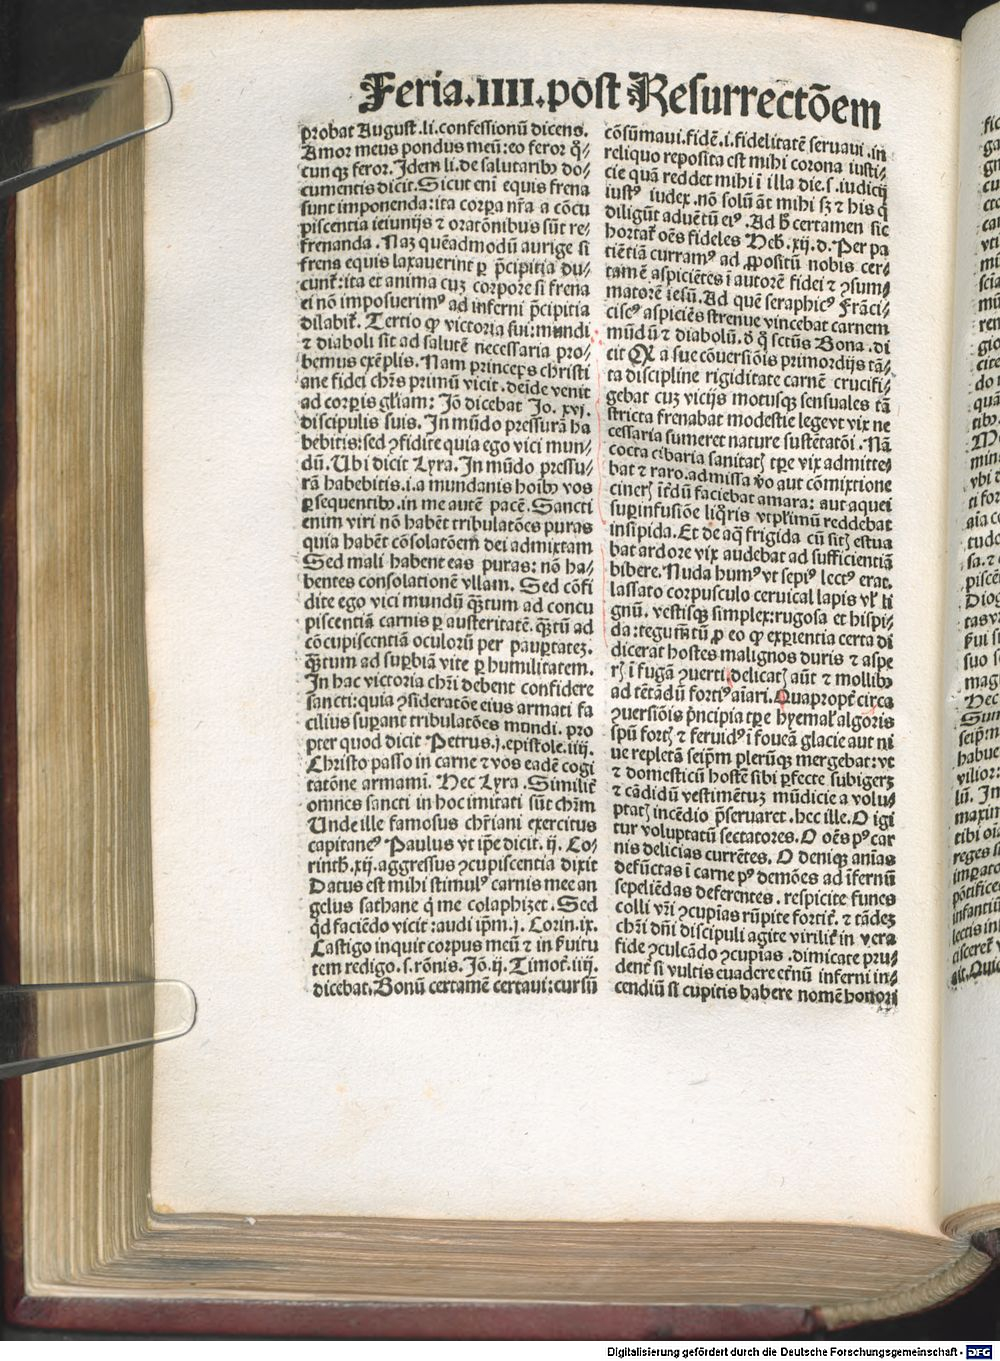 Feria.IIII.post Resurrectōem
probat August.li.confessionū dicens.
Amor meus pondus meū:eo feror q̄-
cunqꝫ feror. Idem li.de salutaribꝰ do-
cumentis dicit.Sicut eni equis frena
sunt imponenda:ita corpꝑa nr̄a a cōcu
piscentia ieiunijs ⁊ oratōnibus sūt re-
frenanda. Naꝫ quēadmodū aurige si
frena equis laxauerint ꝑ p̄cipitia du-
cunt̄:ita et anima cuꝫ corpore si frena
ei nō imposuerimꝰ ad inferni p̄cipitia
dilabit̄. Tertio ꝙ victoria sui:mundi
⁊ diaboli sit ad salutē necessaria pro-
bemus exēplis. Nam princeps christi
ane fidei chr̄s primū vicit. deīde venit
ad corpis gl̄iam: Iō dicebat Jo. xvj.
discipulis suis. In mūdo pressurā ha
bebitis:sed ꝯfidite quia ego vici mun-
dū. Ubi dicit Lyra. In mūdo pressu-
rā habebitis.i.a mundanis hoibꝰ vos
ꝑsequentibꝰ.in me autē pacē. Sancti
enim viri nō habēt tribulatōes puras
quia habēt cōsolatōem dei admixtam
Sed mali habent eas puras: nō ha-
bentes consolationē vllam. Sed cōfi
dite ego vici mundū q̄tum ad concu
piscentiā carnis ꝑ austeritatē. q̄tū ad
cōcupiscentiā oculorū per paupertateꝫ.
q̄tum ad suꝑbiā vite ꝑ humilitatem.
In hac victoria chr̄i debent confidere
sancti:quia ꝯsideratōe eius armati fa
cilius suꝑant tribulatōes mundi. pro
pter quod dicit Petrus.j.epistole.iiij.
Christo passo in carne ⁊ vos eadē cogi
tatōne armamī. Hec Lyra. Similit̄
omnes sancti in hoc imitati sūt chr̄m
Unde ille famosus chr̄iani exercitus
capitaneꝰ Paulus vt ip̄e dicit.ij. Co-
rinth.xij.aggressus ꝯcupiscentia dixit
Datus est mihi stimulꝰ carnis mee an
gelus sathane q̇ me colaphizet. Sed
qd faciēdo vicit:audi ip̄m.j. Corin.ix.
Castigo inquit corpus meū ⁊ in ẜuitu
tem redigo.s.rōnis. Iō.ij.Timot̄.iiij.
dicebat.Bonū certamē certaui:cursū
cōsūmaui.fidē.i.fidelitatē seruaui.in
reliquo reposita est mihi corona iusti-
cie quā reddet mihi ī illa die.s.iudicij
iustꝰ iudex.nō solū āt mihi sꝫ ⁊ his q̇
diligūt aduētū eiꝰ. Ad h̄ certamen sic
hortat̄ oēs fideles Heb̄.xij.d.Per pa
tiētiā curramꝰ ad ꝓpositū nobis cer-
tamē aspiciētes ī autorē fidei ⁊ ꝯsum-
matorē iesū.Ad quē seraphicꝰ Frāci-
scꝰ aspiciēs strenue vincebat carnem
mūdū ⁊ diabolū. d̄ q̇ sctūs Bona.di
cit Ꝙ a sue cōuersiōis primordijs tā-
ta discipline rigiditate carnē crucifi-
gebat cuꝫ vicijs motusqꝫ sensuales tā
stricta frenabat modestie lege vt vix ne
cessaria sumeret nature sustētatōi. Nā
cocta cibaria sanitatꝭ tꝑe vix admitte-
bat ⁊ raro.admissa v̊o aut cōmixtione
cinerꝭ īt̄dū faciebat amara: aut aquei
suꝑinfusiōe liq̇ris vtplimū reddebat
insipida. Et de aq̇ frigida cū sitꝭ estua
bat ardore vix audebat ad sufficientiā
bibere. Nuda humꝰ vt sepiꝰ lectꝰ erat.
lassato corpusculo ceruical lapis vl̄ li
gnū. vestisqꝫ simplex:rugosa et hispi-
da:tegum̄tū ꝓ eo ꝙ exꝑientia certa di
dicerat hostes malignos duris ⁊ aspe
rꝭ ī fugā ꝯuerti.delicatꝭ aūt ⁊ mollibꝰ
ad tētādū fortiꝰ aīari. Quapropt̄ circa
ꝯuersiōis p̄ncipia tꝑe hyemal̄ algoris
spū fortꝭ ⁊ feruidꝰ ī foueā glacie aut ni
ue repletā seip̄m plerūqꝫ mergebat:vt
⁊ domesticū hostē sibi ꝑfecte subigerꝫ
⁊ cādidū vestimētuꝫ mūdicie a volu-
ptatꝭ incēdio p̄seruaret.hec ille.O igi
tur voluptatū sectatores. O oēs pꝰ car
nis delicias currētes. O deniqꝫ aīas
defūctas ī carne pꝰ demōes ad īfernū
sepeliēdas deferentes. respicite funes
colli vr̄i ꝯcupias rūpite fortit̄. ⁊ tādeꝫ
chr̄i dn̄i discipuli agite virilit̄ in vera
fide ꝯculcādo ꝯcupias.dimicate pru-
dent̄ si vultis euadere et̄nū inferni in-
cendiū si cupitis habere nomē honori
Digitalisierung gefördert durch die Deutsche Forschungsgemeinschaft - DFG